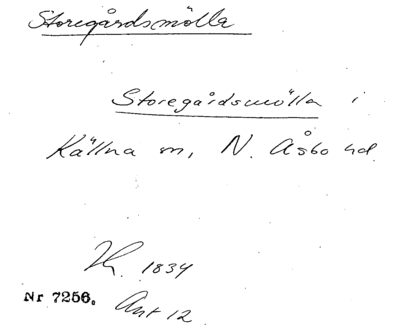 Storegårdsmölla
Storegårdsmölla i
Källna sn, N. Åsbo hd.
1834
Nr 7256. Avt 12